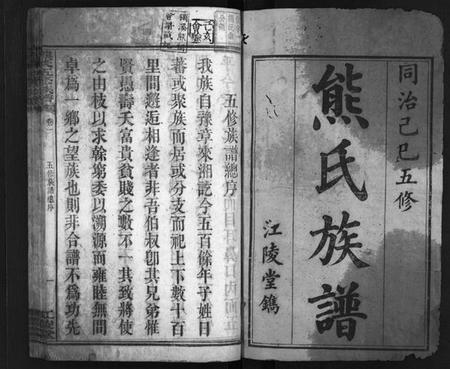 同治己巳五修
熊氏族譜
江陵堂鐫
五修族譜總序
我族自豫章來湘訖今五百餘年子姓日
蕃或聚族而居或分支而祀上下數十百
里間邂逅相逢者非吾伯叔卽其兄弟催
賢愚壽夭富貴貧賤之數不一其致將使
之由枝以求幹窮委以溯源而雍睦無間
卓爲一鄉之望族也則非合譜不爲功先
五修族譜總序